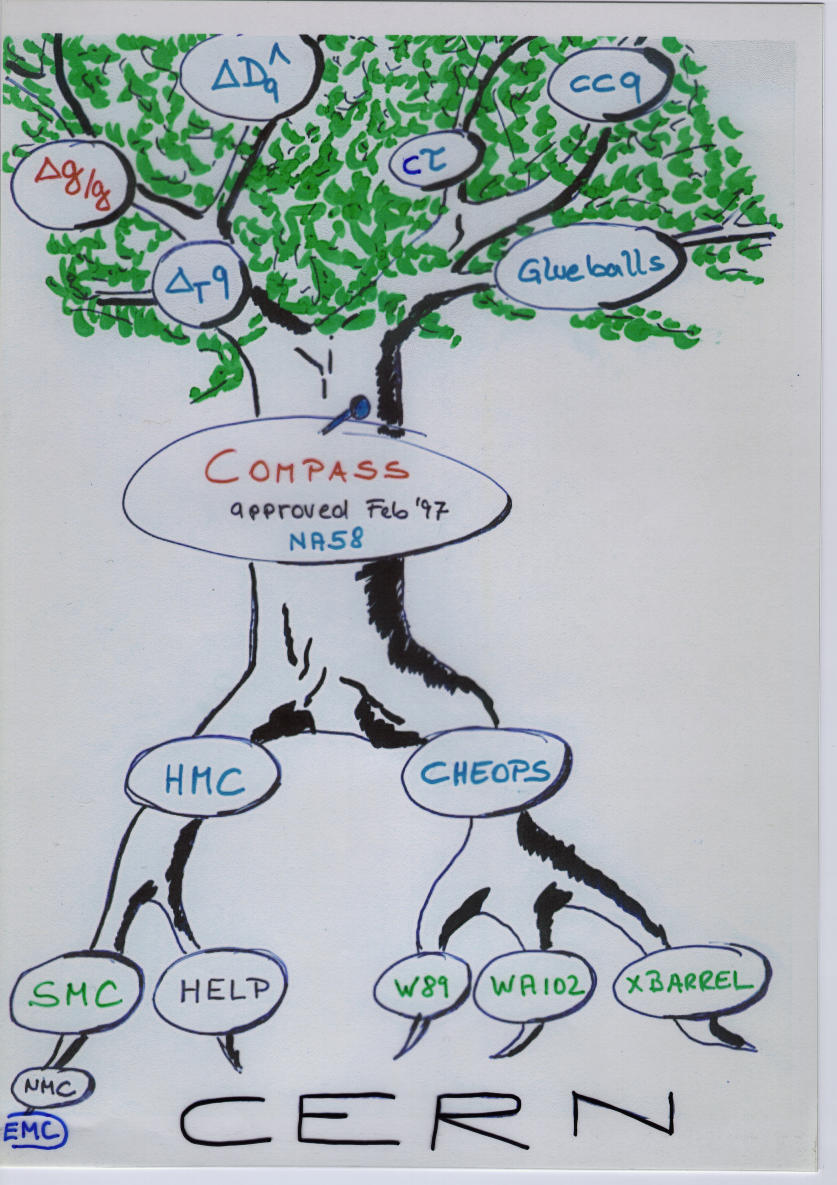 ΔD q ^
ccq
cτ
Δg/g
Δ_T q
Glueballs
COMPASS
approved Feb '97
NA58
HMC
CHEOPS
SMC
HELP
W89
WA102
XBARREL
NMC
EMC
CERN